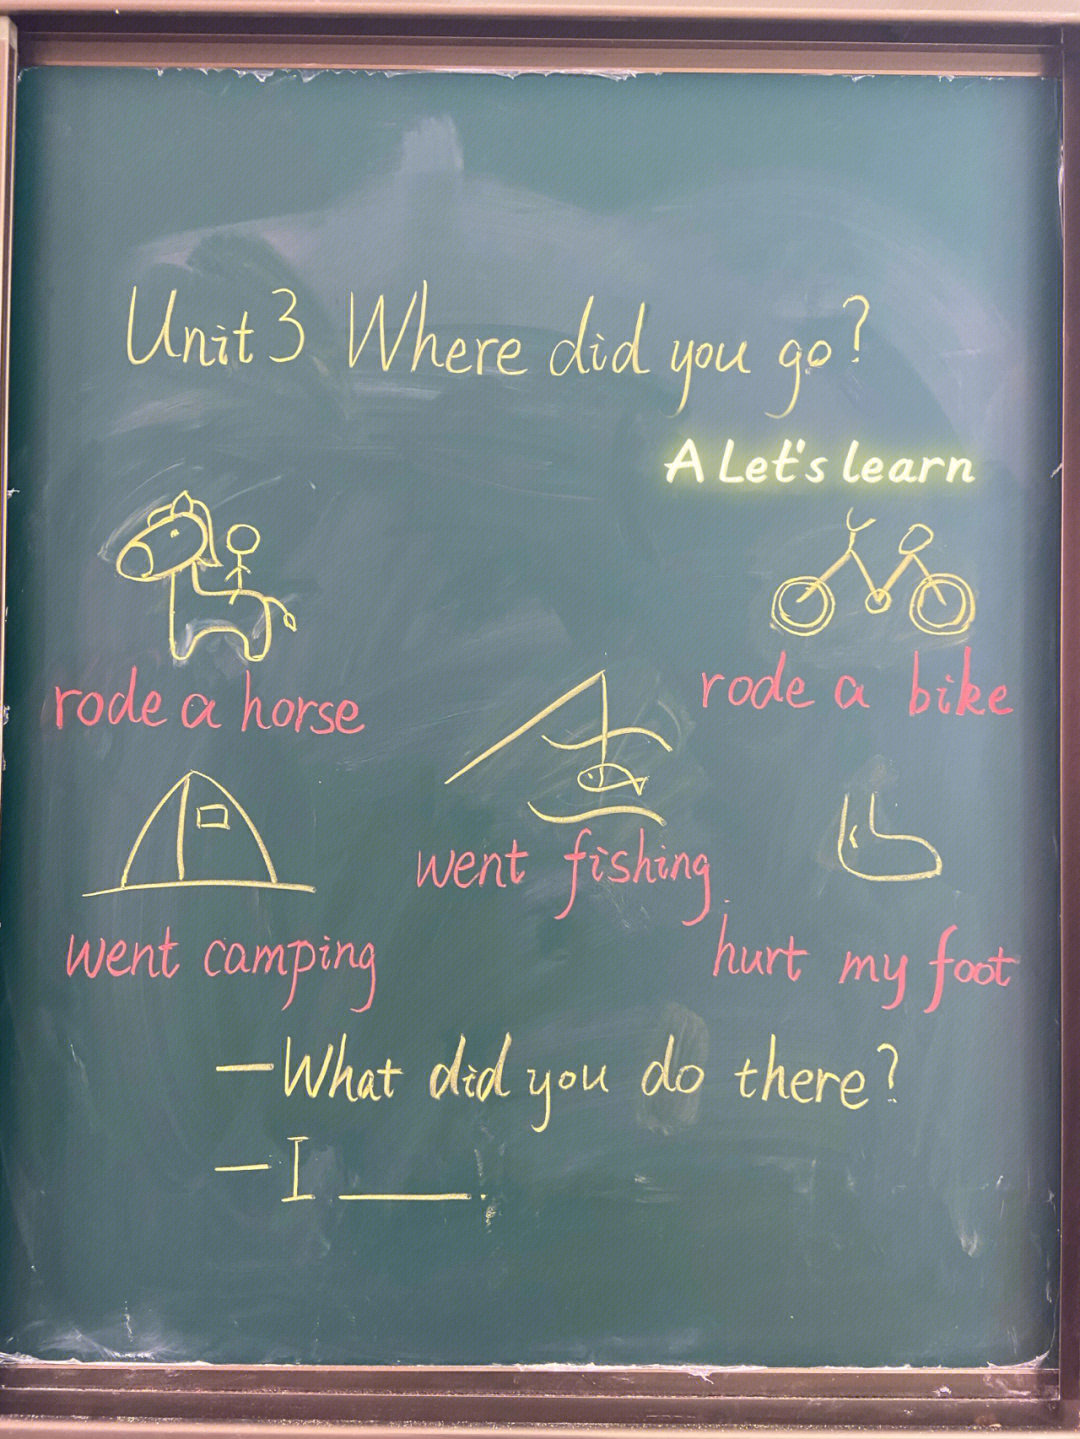 Unit 3 Where did you go?
A Let's learn
rode a horse
rode a bike
went fishing
went camping
hurt my foot
—What did you do there?
—I ______.